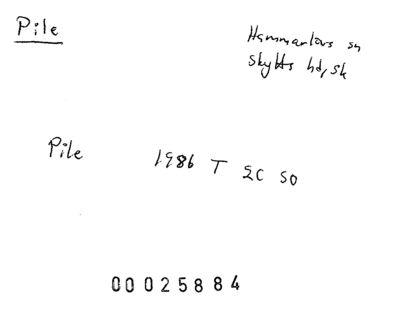 Pile
Hammarlövs sn
Skytts hd, Sk
Pile 1986 T 2C SO
00025884